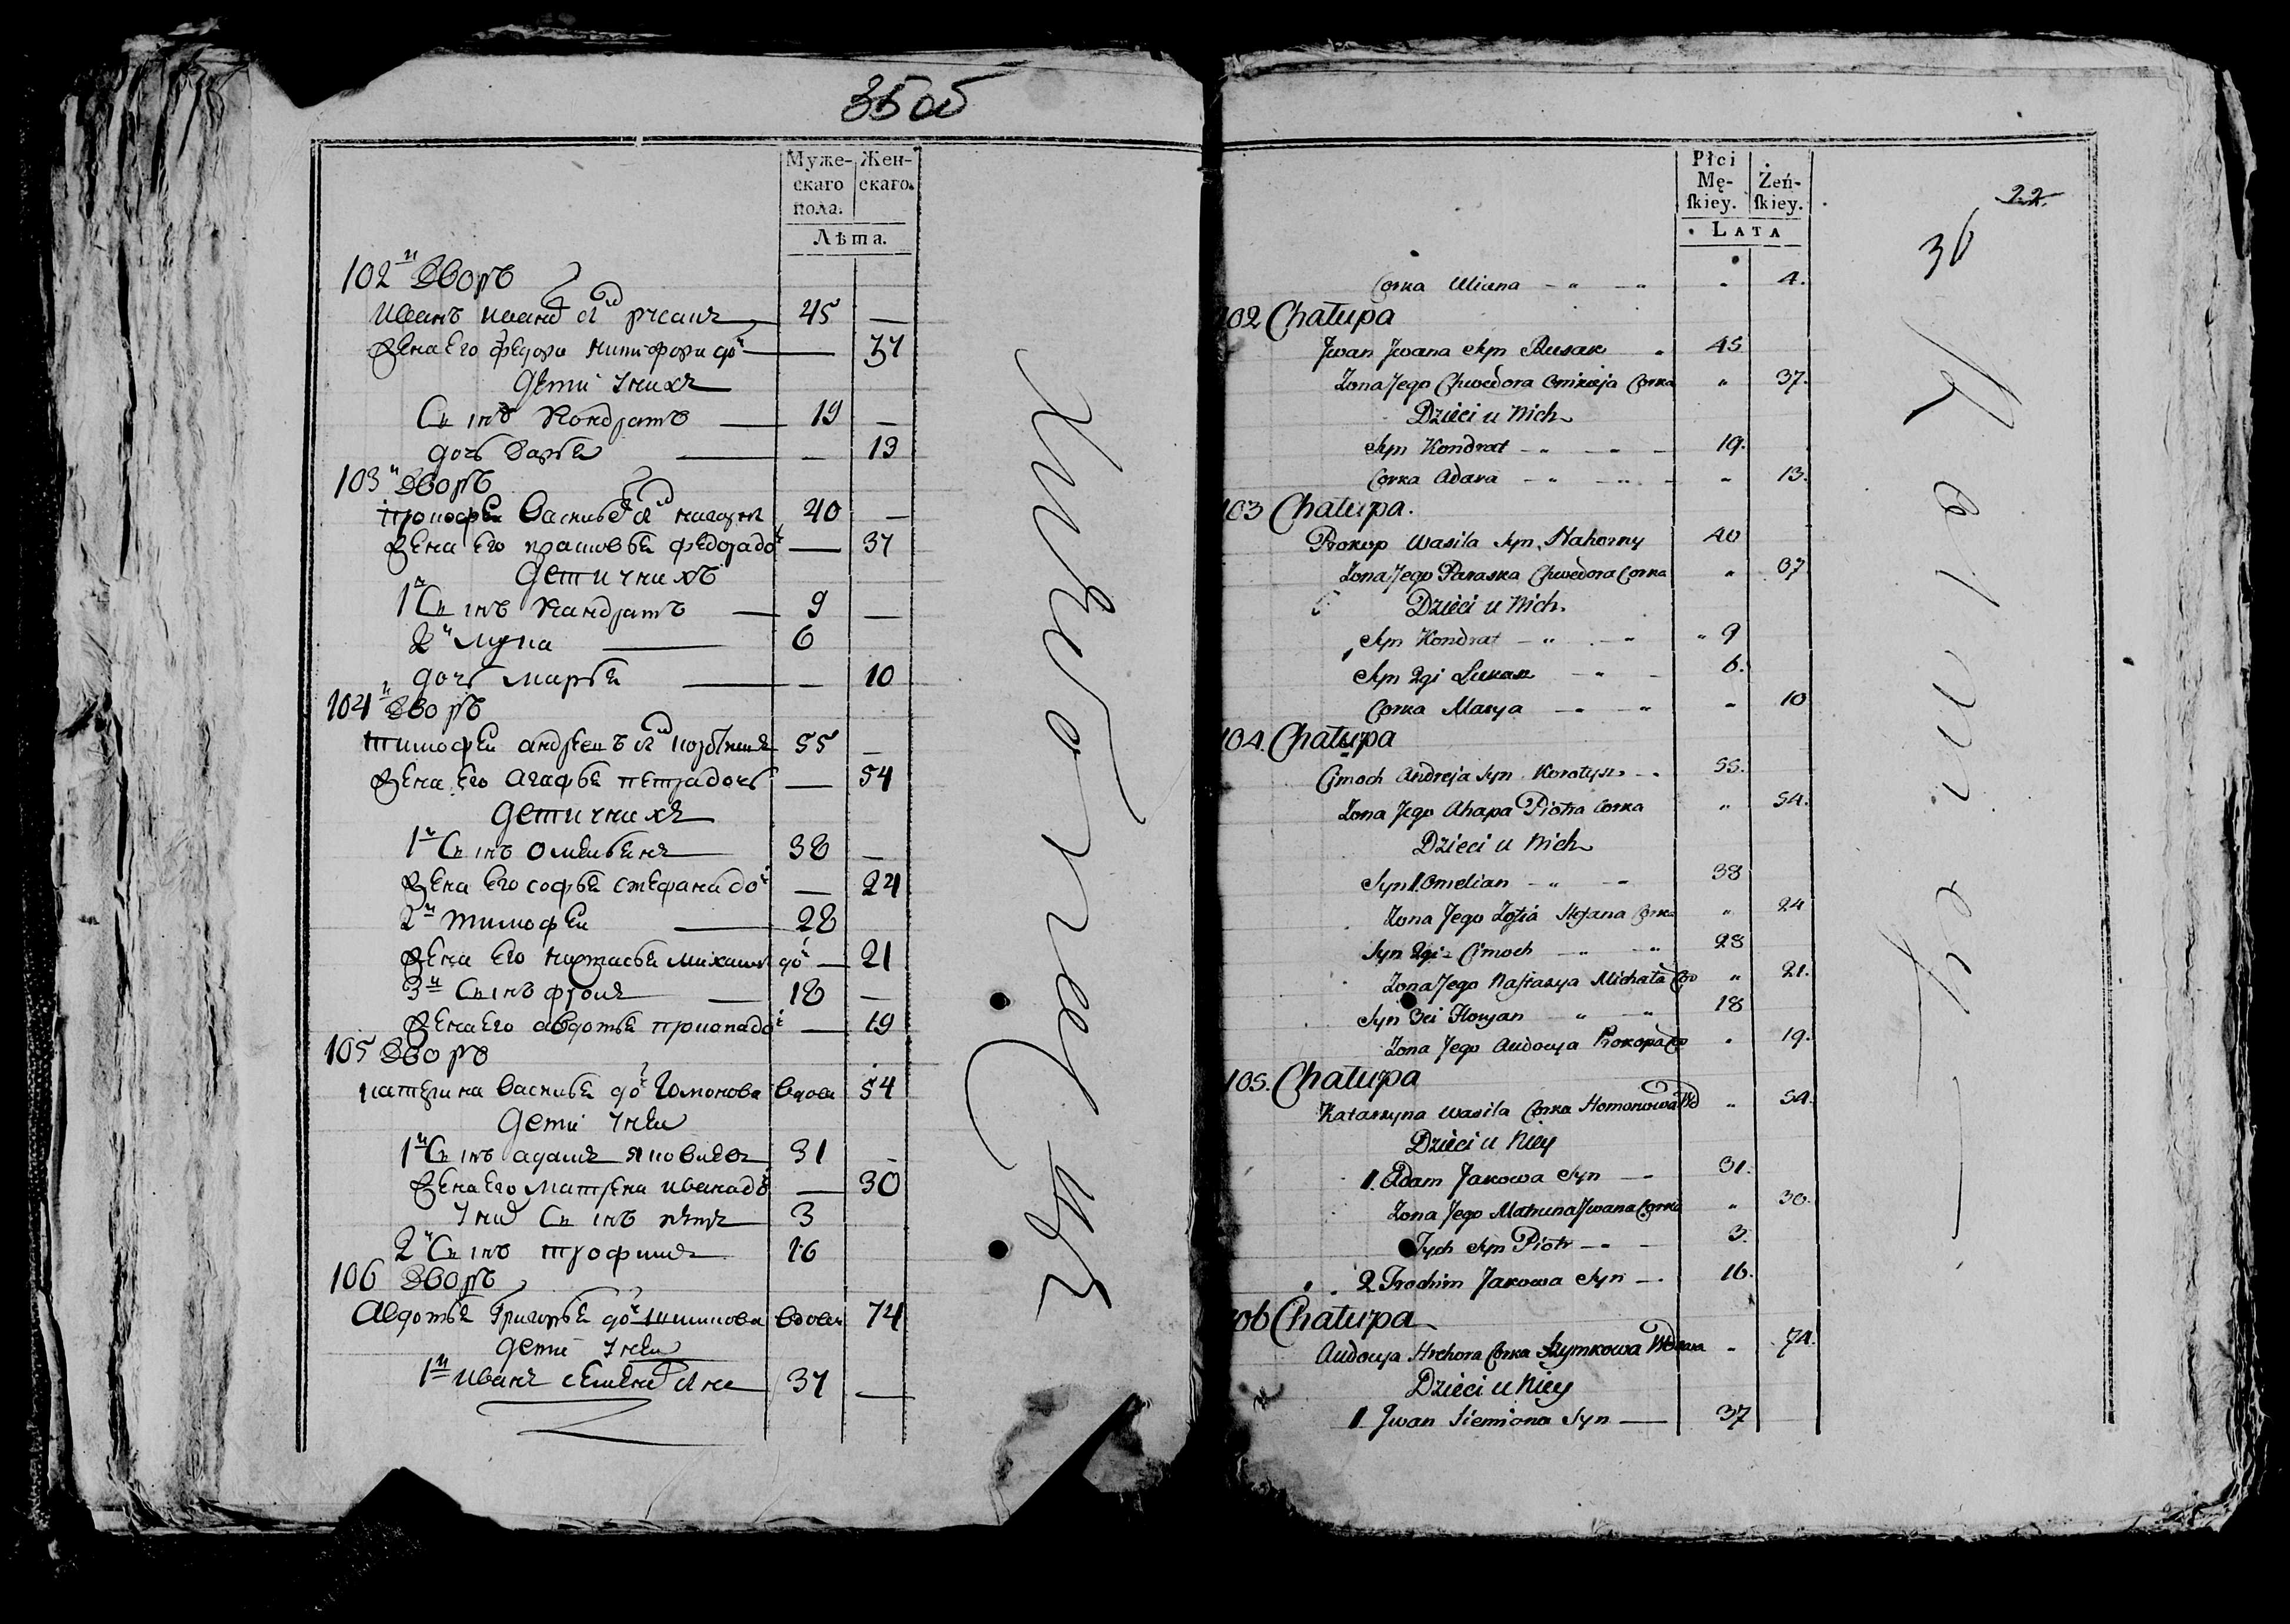 35 об
Муже-
скаго
пола.
Жен-
скаго.
Лѣта.
102й Дворъ
Иванъ Ивана сн Русакъ 45 —
Жена Его Федора дочь — 37
Дети у нихъ
Сынъ Кондратъ — 19 —
дочь Дарья — — 13
103й Дворъ
Прокофеи Василья сн Нагорни 40 —
Жена Его Прасковья Федора до — 37
Дети у нихъ
1й Сынъ Кандратъ — 9 —
2й Лука — 6
дочь Марья — — 10
104й Дворъ
Тимофеи Андреи сн 55 —
Жена Его Агафья Петра дочь — 54
Дети у нихъ
1й Сынъ Омельянъ 38 —
Жена Его Софья Стефана до — 24
2й Тимофеи — 28
Жена Его Настасья Михаила до — 21
3й Сынъ Фролъ — 18 —
Жена Его Авдотья Прокопа до — 19
105 Дворъ
Катерина Василья до Гомонова вдова 54
Дети у неи
1й Сынъ Адамъ Яковлевъ 31 —
Жена Его Матрена Ивана до — 30
у них Сынъ Петръ 3
2й Сынъ Трофимъ 16
106 Дворъ
Авдотья Григорья до Шимкова вдова 74
Дети у неи
1й Иванъ Семена сн 37 —
Płci
Mę-
ſkiey.
Żeń-
ſkiey.
LATA
22
36
Corka Uliana — „ — „ „ 4.
102 Chałupa
Jwan Jwana Syn Rusak „ 45
Zona Jego Chwedora Corka „ 37.
Dzieci u Nich
Syn Kondrat — „ — „ — 19.
Corka Adara — „ — „ — „ 13.
103 Chałupa.
Prokop Wasila Syn Nahorny 40
Zona Jego Paraska Chwedora Corka „ 37
Dzieci u Nich.
Syn Kondrat — „ — „ „ 9
Syn 2gi Łukasz — „ — 6.
Corka Marya — „ — „ „ 10
104. Chałupa
Cimoch Andreja Syn Korotysz — „ 55.
Zona Jego Ahapa Piotra Corka „ 54.
Dzieci u Nich
Syn 1. Omelian — „ — „ 38
Zona Jego Zofia Stefana Corka „ 24
Syn 2gi Cimoch — „ — „ 28
Zona Jego Nastazya Michała Co „ 21.
Syn 3ci Floryan „ „ 18
Zona Jego Audocya Prokopa Co „ 19.
105. Chałupa
Katarzyna Wasila Corka Homonowa Wd „ 54.
Dzieci u Niey
1. Adam Jakowa Syn — 31.
Zona Jego Matruna Jwana Corka „ 30.
Tych Syn Piotr — „ — 3.
2 Trochim Jakowa Syn — 16.
106 Chałupa
Audocya Hrehora Corka Szymkowa Wdowa „ 74.
Dzieci u Niey
1. Jwan Siemiona Syn — 37